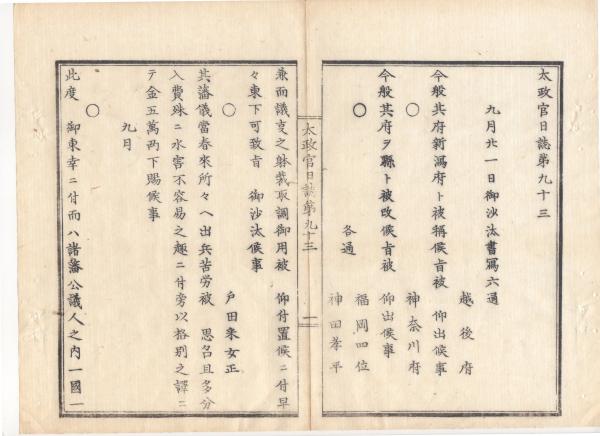 太政官日誌第九十三
九月廿一日御沙汰書寫六通
越後府
今般其府新潟府ト被稱候旨被 仰出候事
神奈川府
今般其府ヲ縣ト被改候旨被 仰出候事
○
各通
福岡四位
神田孝平
太政官日誌第九十三 一
兼而議事之躰裁取調御用被 仰付置候ニ付早
々東下可致旨 御沙汰候事
○
戸田采女正
其藩儀當春來所々ヘ出兵苦勞被 思召且多分
入費殊ニ水害不容易之趣ニ付旁以格別之譯ニ
テ金五萬兩下賜候事
九月
○
此度 御東幸ニ付而ハ諸藩公議人之内一國一